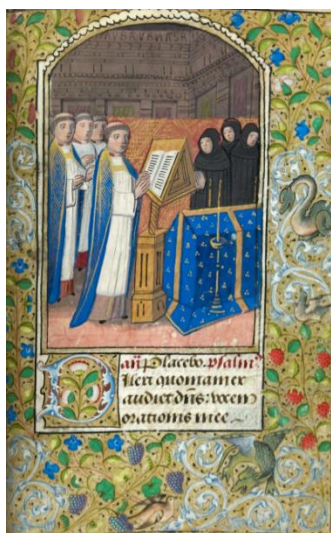 añ Placebo. psalm⁹
Dilexi quoniam ex
audiet dn̄s: vocem
orationis mee